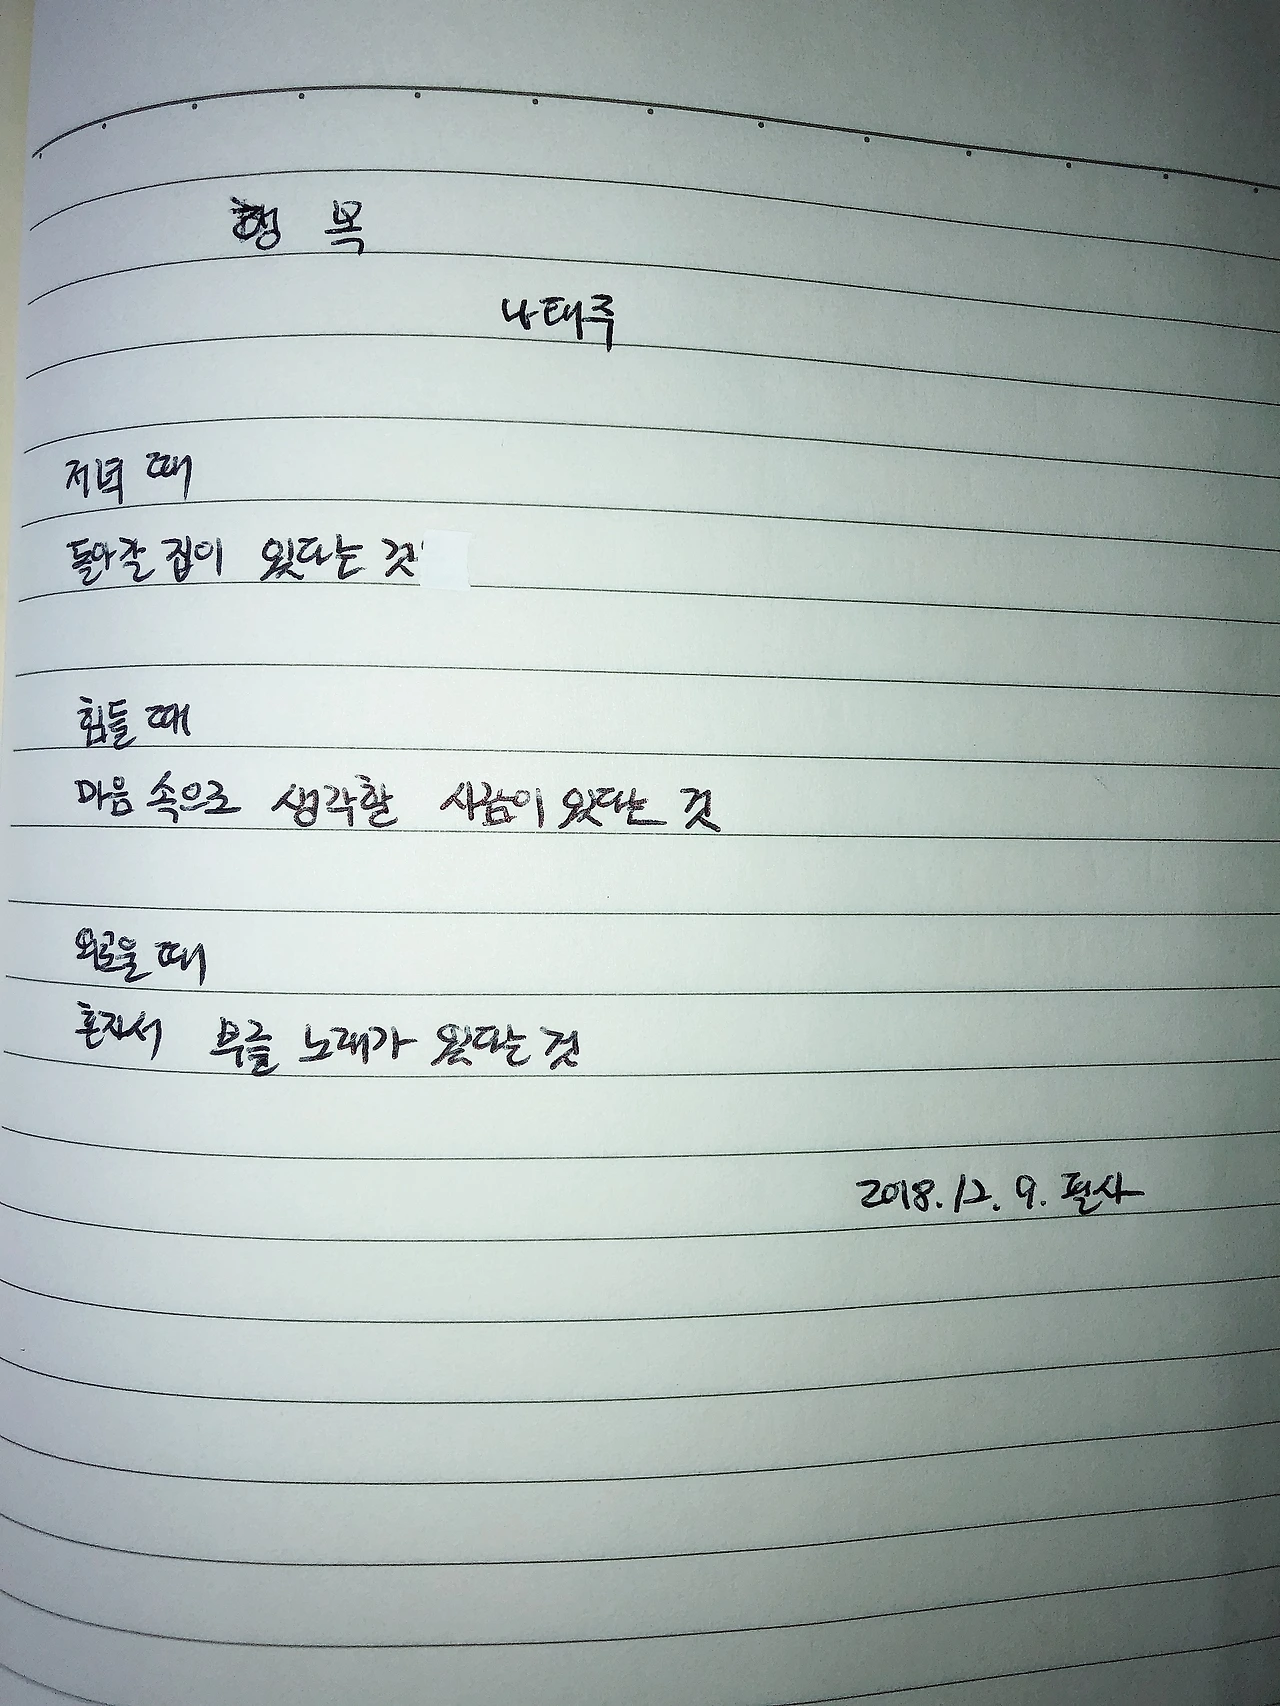 행 복
나태주
저녁 때
돌아갈 집이 있다는 것
힘들 때
마음 속으로 생각할 사람이 있다는 것
외로울 때
혼자서 부를 노래가 있다는 것
2018.12.9. 필사